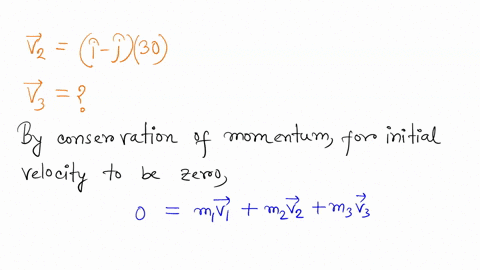 V⃗₂ = (î-ĵ)(30)
V⃗₃ = ?
By conservation of momentum, for initial
velocity to be zero,
0 = m₁v⃗₁ + m₂v⃗₂ + m₃v⃗₃